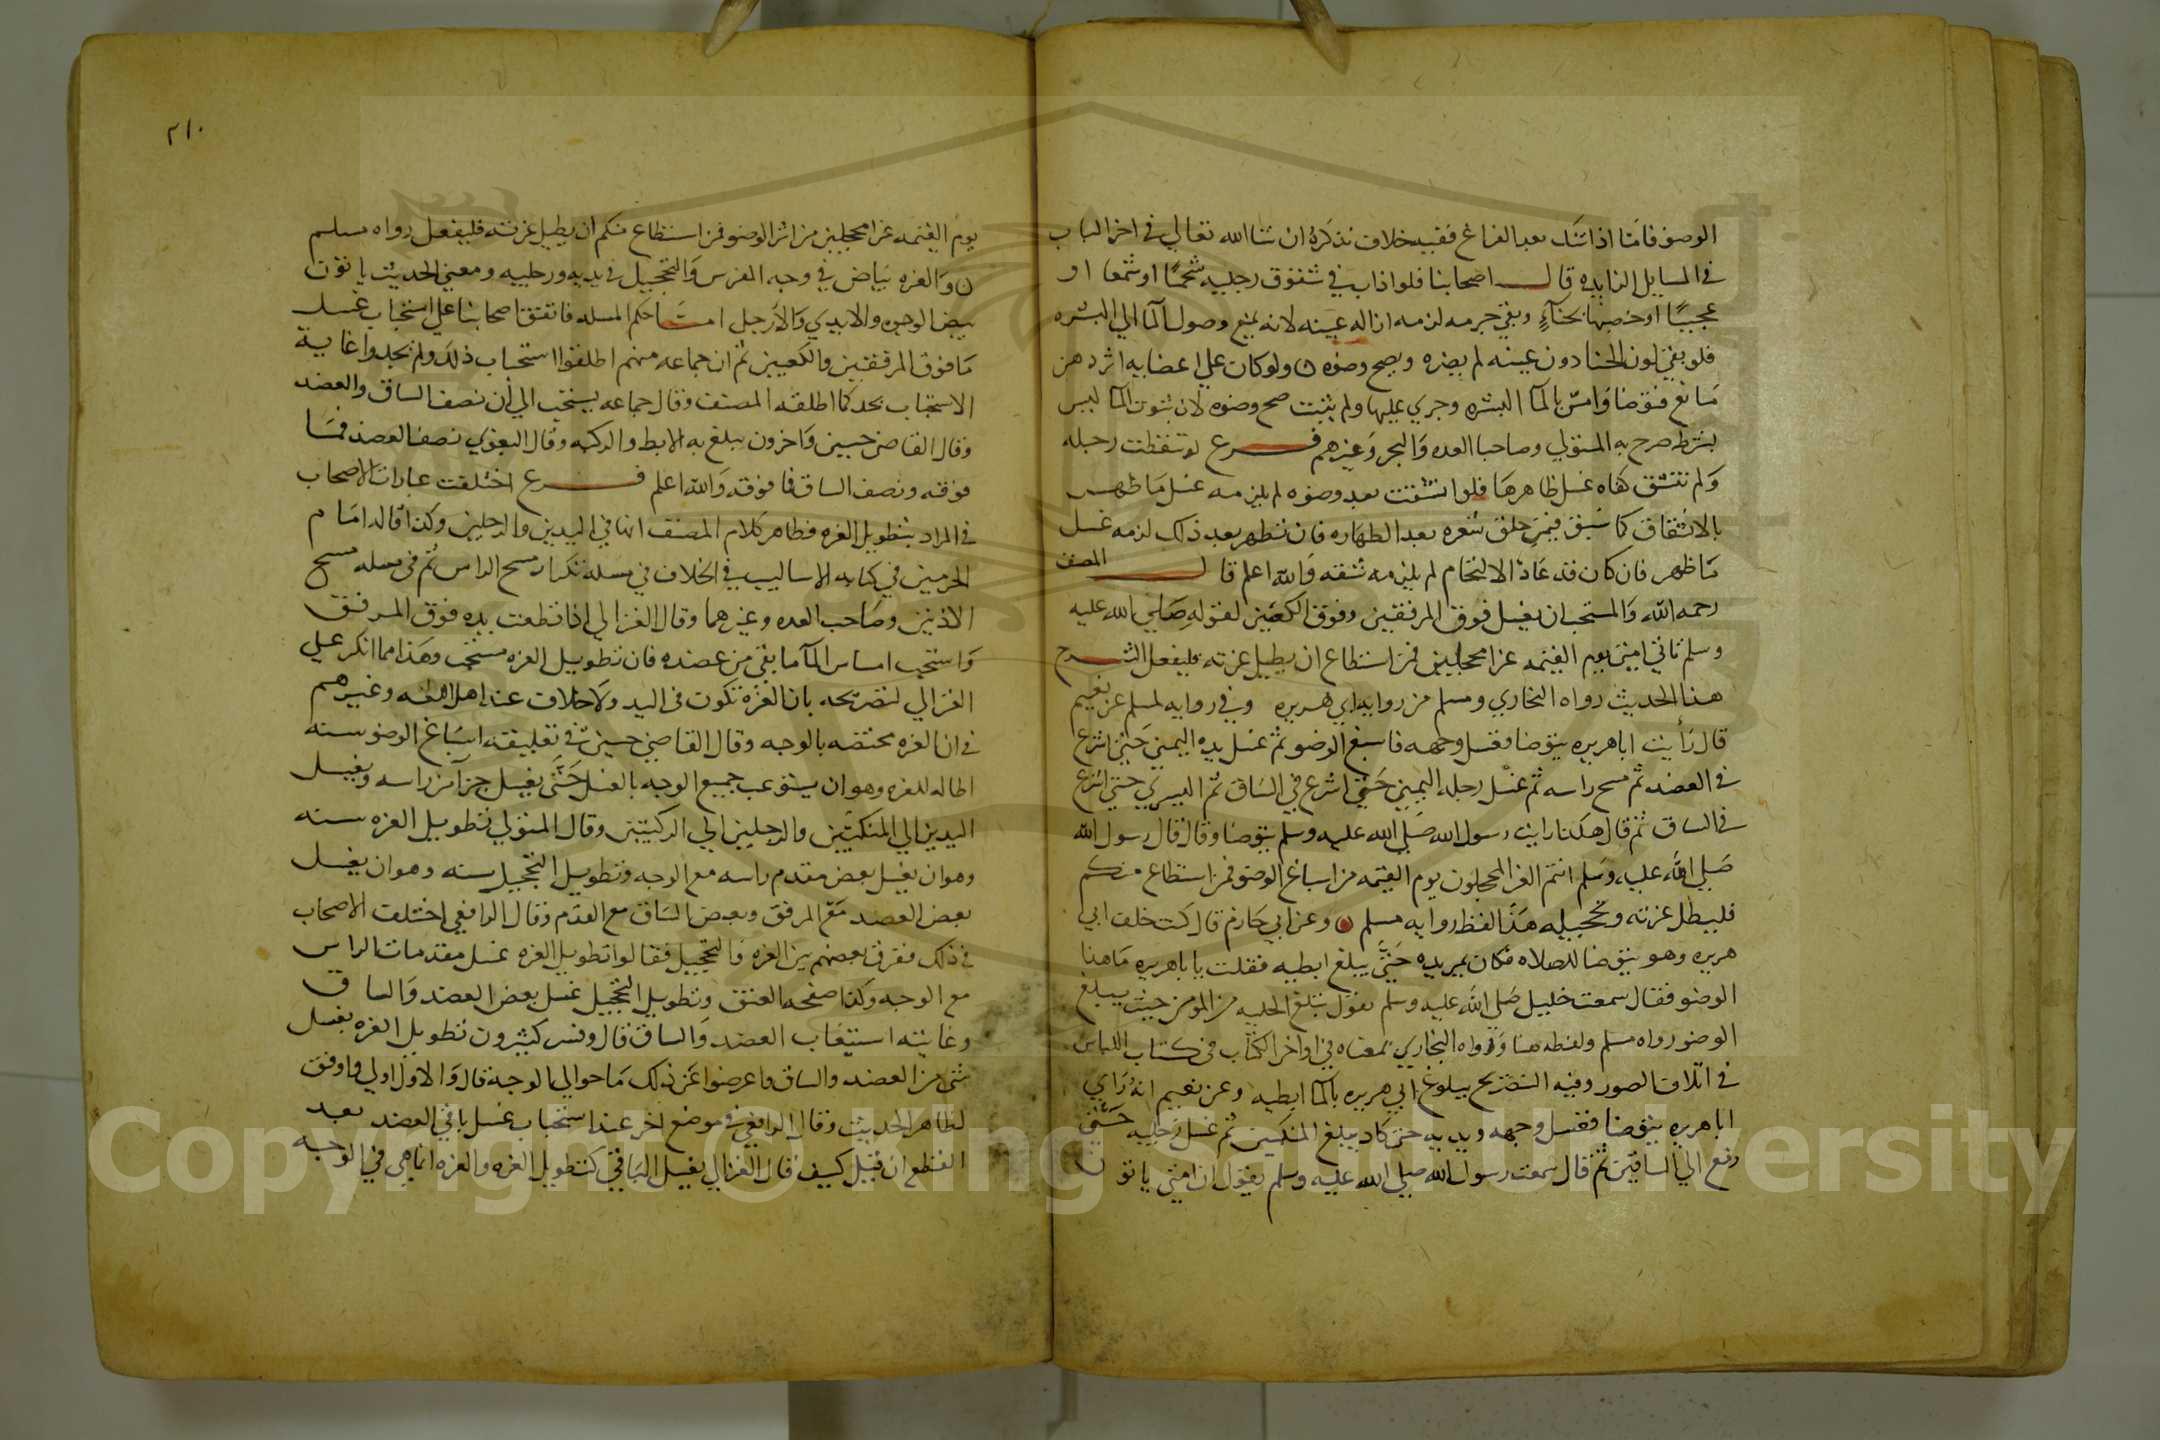 الوضو فاما اذا شك بعد الفراغ ففيه خلاف نذكره ان شا الله تعالي في اخر الباب
في المسايل الزايده قال اصحابنا فلو اذاب في شقوق رجليه شحما او شمعا او
عجينا او خضبها بحناء وبقي جرمه لزمه ازاله عينه لانه يمنع وصول الما الي البشره
فلو بقي لون الحنا دون عينه لم يضره ويصح وضوه ولو كان علي اعضايه اثر دهن
مايع فتوضا وامس بالما البشره وجري عليها ولم يثبت صح وضوه لان ثبوت الما ليس
بشرط صرح به المتولي وصاحبا العده والبحر وغيرهم فرع لو تنفطت رجله
ولم تنشق كفاه غسل ظاهرها فلو انشقت بعد وضوه لم يلزمه غسل ما ظهر
بالانشقاق كما سبق فيمن حلق شعره بعد الطهاره فان تطهر بعد ذلك لزمه غسل
ما ظهر فان كان قد عاد الالتحام لم يلزمه شقه والله اعلم قال المصنف
رحمه الله والمستحب ان يغسل فوق المرفقين وفوق الكعبين لقوله صلي الله عليه
وسلم تاتي امتي يوم القيمه غرا محجلين فمن استطاع ان يطيل غرته فليفعل الشرح
هذا الحديث رواه البخاري ومسلم من روايه ابي هريره وفي روايه لمسلم عن نعيم
قال رأيت ابا هريره يتوضا فغسل وجهه فاسبغ الوضو ثم غسل يده اليمني حتي اشرع
في العضد ثم مسح راسه ثم غسل رجله اليمني حتي اشرع في الساق ثم اليسري حتي اشرع
في الساق ثم قال هكذا رايت رسول الله صلي الله عليه وسلم يتوضا وقال قال رسول الله
صلي الله عليه وسلم انتم الغر المحجلون يوم القيمه من اسباغ الوضو فمن استطاع منكم
فليطل غرته وتحجيله هذا لفظ روايه مسلم وعن ابي حازم قال كنت خلف ابي
هريره وهو يتوضا للصلاه فكان يمر يده حتي يبلغ ابطيه فقلت يا با هريره ما هذا
الوضو فقال سمعت خليلي صلي الله عليه وسلم يقول تبلغ الحليه من المومن حيث يبلغ
الوضو رواه مسلم ولفظه هنا ورواه البخاري بمعناه في اواخر الكتاب في كتاب اللباس
في اتلاف الصور وفيه التصريح ببلوغ ابي هريره بالما ابطيه وعن نعيم انه راي
ابا هريره يتوضا فغسل وجهه ويديه حتي كاد يبلغ المنكبين ثم غسل رجليه حتي
رفع الي الساقين ثم قال سمعت رسول الله صلي الله عليه وسلم يقول ان امتي ياتون
٢١٠
يوم القيمه غرا محجلين من اثر الوضو فمن استطاع منكم ان يطيل غرته فليفعل رواه مسلم
والغره بياض في وجه الفرس والتحجيل في يديه ورجليه ومعني الحديث ياتون
بيض الوجوه والايدي والارجل اما حكم المسله فاتفق اصحابنا علي استحباب غسل
ما فوق المرفقين والكعبين ثم ان جماعه منهم اطلقوا استحباب ذلك ولم يحدوا غاية
الاستحباب بحد كما اطلقه المصنف وقال جماعه يستحب الي نصف الساق والعضد
وقال القاضي حسين واخرون يبلغ به الابط والركبه وقال البغوي نصف العضد فما
فوقه ونصف الساق فما فوقه والله اعلم فرع اختلفت عبارات الاصحاب
في المراد بتطويل الغره فظاهر كلام المصنف انها في اليدين والرجلين وكذا قاله امام
الحرمين في كتابه الاساليب في الخلاف في مسله تكرار مسح الراس ثم في مسله مسح
الاذنين وصاحب العده وغيرهما وقال الغزالي اذا قطعت يده فوق المرفق
واستحب امساس الما ما بقي من عضده فان تطويل الغره مستحب وهذا مما انكر علي
الغزالي لتصريحه بان الغره تكون في اليد ولا خلاف عند اهل اللغه وغيرهم
في ان الغره مختصه بالوجه وقال القاضي حسين في تعليقه اسباغ الوضو سنه
اطاله للغره وهو ان يستوعب جميع الوجه بالغسل حتي يغسل جزا من راسه ويغسل
اليدين الي المنكبين والرجلين الي الركبتين وقال المتولي تطويل الغره سنه
وهو ان يغسل بعض مقدم راسه مع الوجه وتطويل التحجيل سنه وهو ان يغسل
بعض العضد مع المرفق وبعض الساق مع القدم وقال الرافعي اختلف الاصحاب
في ذلك ففرق بعضهم بين الغره والتحجيل فقالوا تطويل الغره غسل مقدمات الراس
مع الوجه وكذا صفحه العنق وتطويل التحجيل غسل بعض العضد والساق
وغايته استيعاب العضد والساق قال وفسر كثيرون تطويل الغره بغسل
شي من العضد والساق واعرضوا عن ذلك ما حوالي الوجه قال والاول اولي واوفق
لظاهر الحديث وقال الرافعي في موضع اخر عند استحباب غسل باقي العضد بعد
القطع ان قيل كيف قال الغزالي يغسل الباقي كتطويل الغره والغره انما هي في الوجه
Copyright © King Saud University